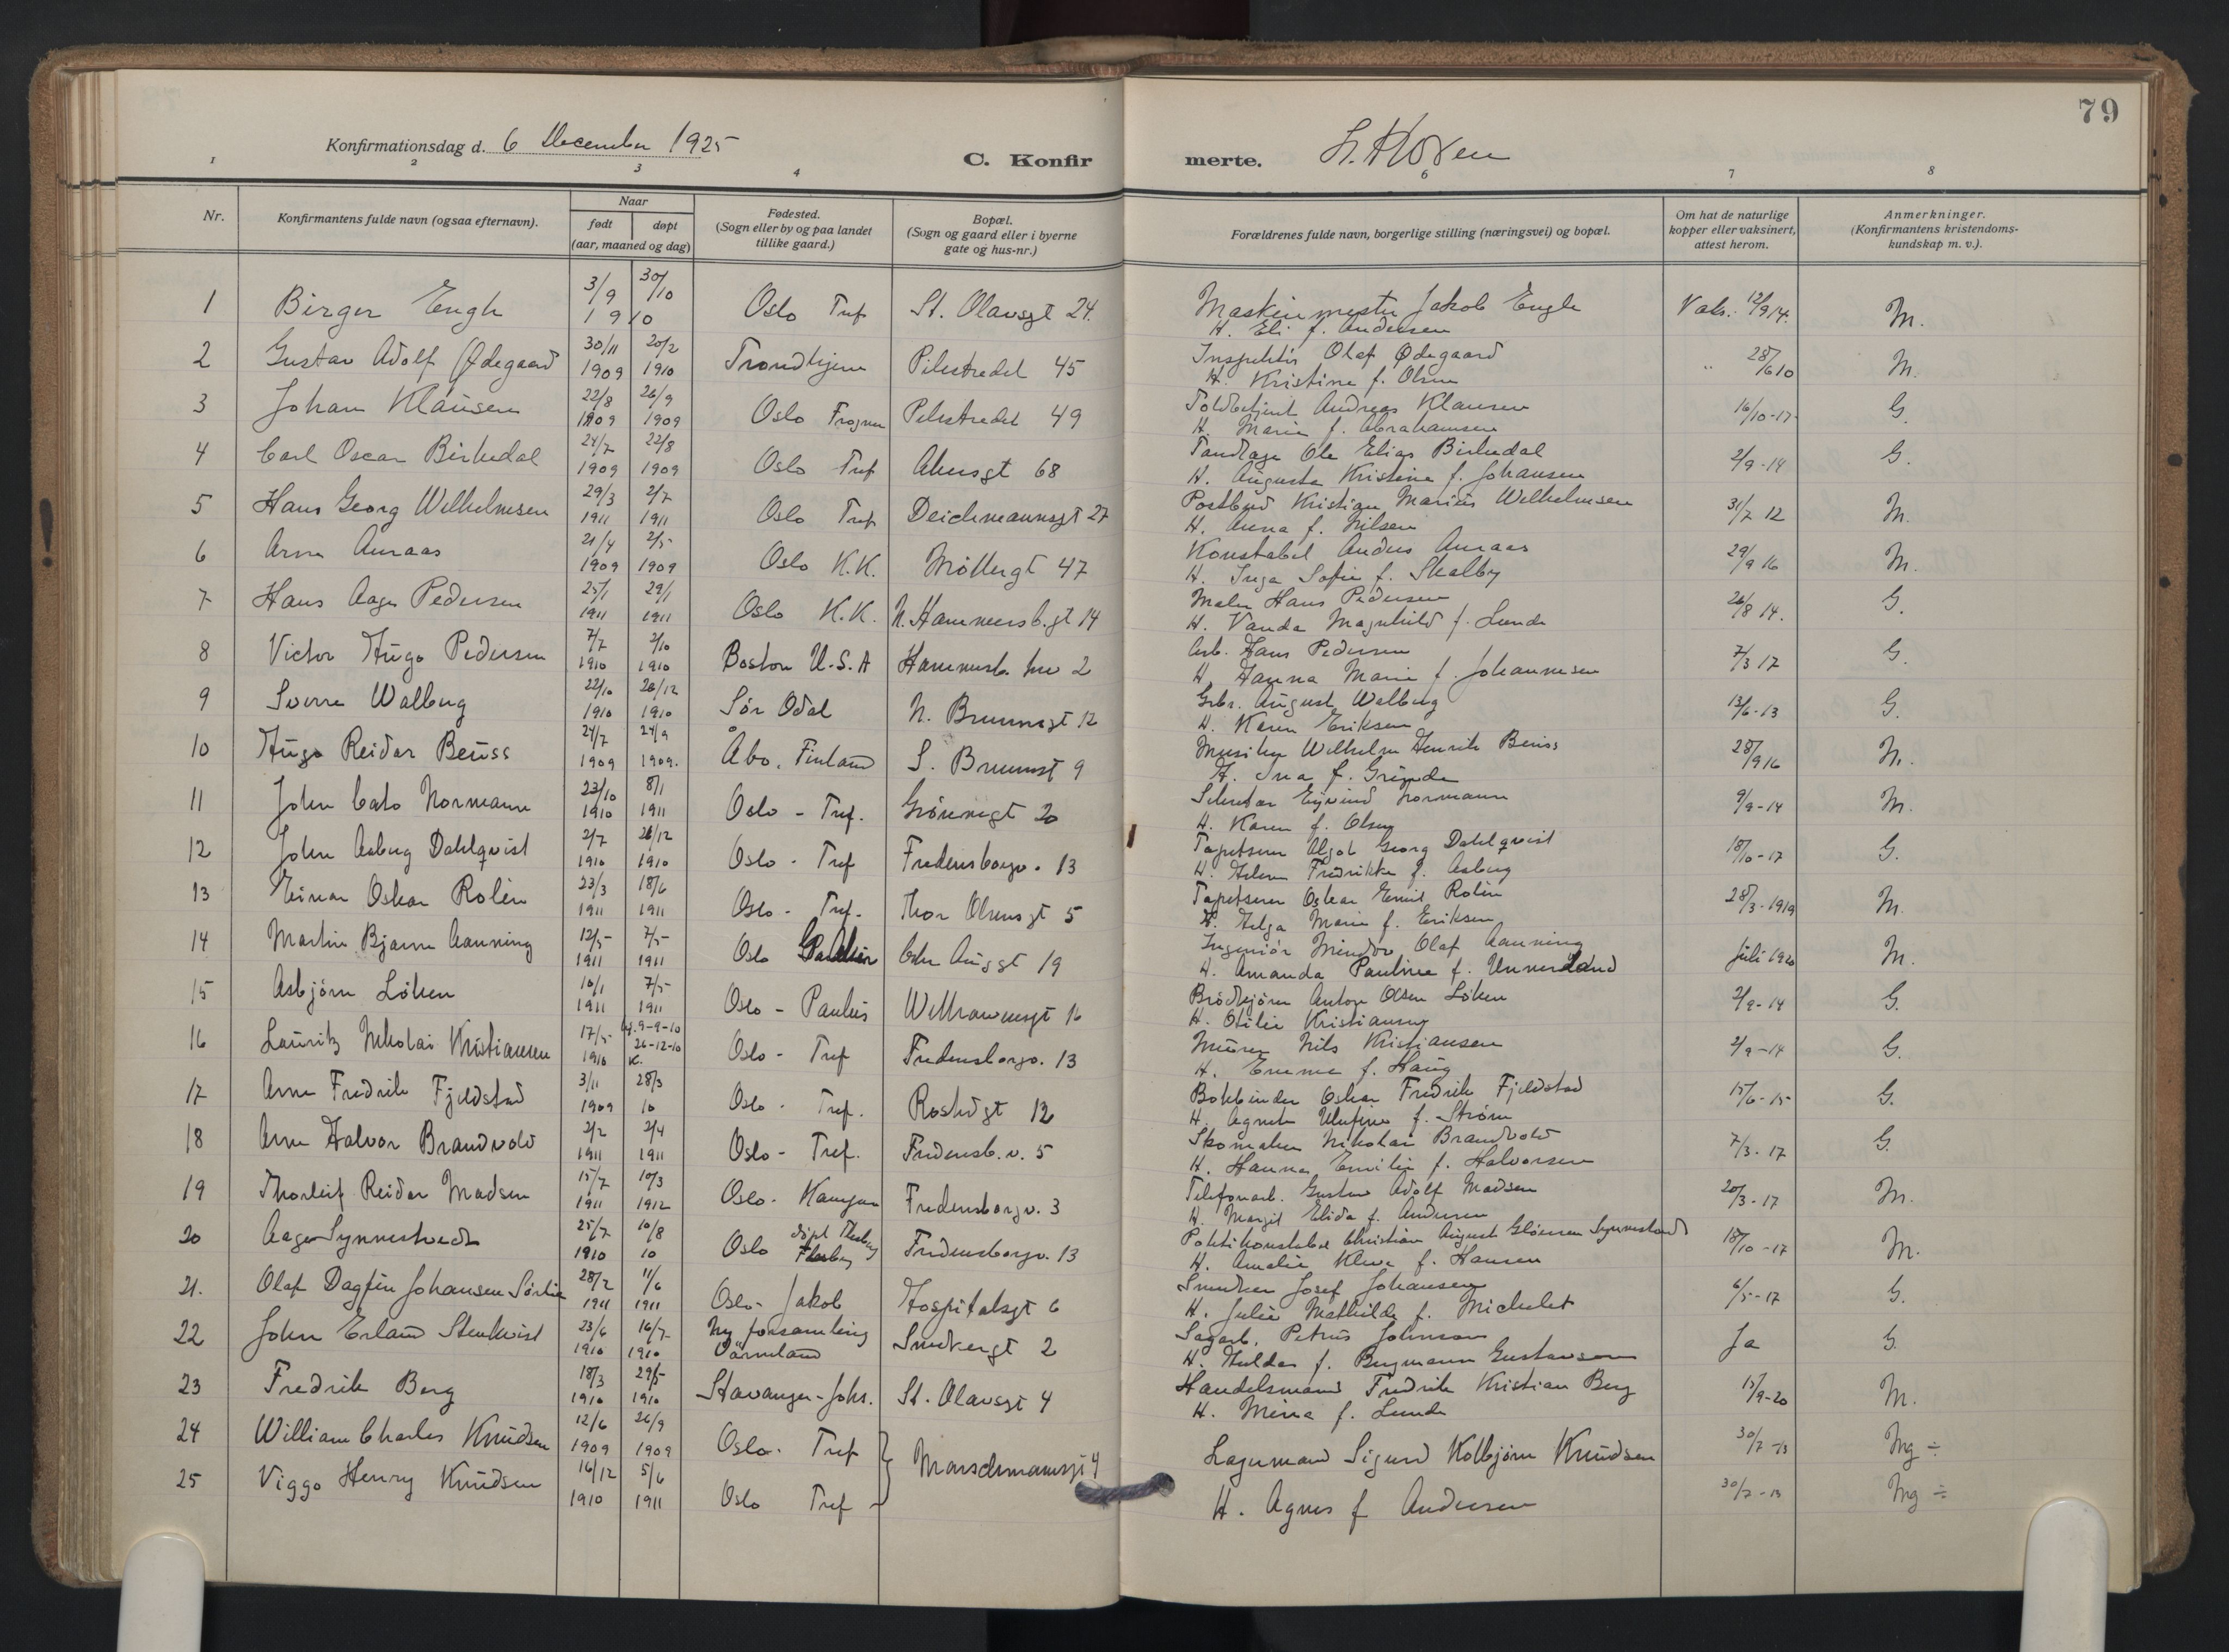 79
Konfirmationsdag d. 6 December 1925
C. Konfirmerte.
1 2 3 4 6 7 8
Nr.
Konfirmantens fulde navn (ogsaa efternavn).
Naar
født døpt
(aar, maaned og dag)
Fødested.
(Sogn eller by og paa landet
tillike gaard.)
Bopæl.
(Sogn og gaard eller i byerne
gate og hus-nr.)
Forældrenes fulde navn, borgerlige stilling (næringsvei) og bopæl.
Om hat de naturlige
kopper eller vaksinert,
attest herom.
Anmerkninger.
(Konfirmantens kristendoms-
kundskap m. v.).
1 Birger Engh 3/9 30/10 1910 Oslo Tref St. Olavsgt 24. Maskinmester Jakob Engh Vaks. 12/9 14. M.
H. Eli f. Andersen
2 Gustav Adolf Ødegaard 30/11 1909 20/2 1910 Trondhjem Pilestredet 45 Inspektør Olaf Ødegaard " 28/6 10 M.
H. Kristine f. Olsen
3 Johan Klausen 22/8 1909 26/9 1909 Oslo Frogner Pilestredet 49 Toldbetjent Andreas Klausen 16/10-17 G.
H. Marie f. Abrahamsen
4 Carl Oscar Birkedal 24/7 1909 22/8 1909 Oslo Tref Akersgt 68 Tandlæge Ole Elias Birkedal 2/9-14 G.
H. Augusta Kristine f. Johansen
5 Hans Georg Wilhelmsen 29/3 1911 2/7 1911 Oslo Tref Deichmannsgt 27 Postbud Kristian Marius Wilhelmsen 31/7 12 M.
H. Anna f. Nilsen
6 Arne Auraas 21/4 1909 2/5 1909 Oslo K.K. Møllergt 47 Konstabel Anders Auraas 29/9 16 M.
H. Inga Sofie f. Skalby
7 Hans Aage Pedersen 25/1 1911 29/1 1911 Oslo K.K. N. Hammersb.gt 14 Maler Hans Pedersen 26/8 14. G.
H. Vanda Magnhild f. Lunde
8 Victor Hugo Pedersen 7/7 1910 2/10 1910 Boston U.S.A Hammersb. 2 Arb. Hans Pedersen 7/3 17 G.
H. Hanna Marie f. Johannesen
9 Sverre Walberg 22/10 1910 26/12 1910 Sør Odal N. Brunnsgt 12 August Walberg 13/6-13 G.
H. Karen Eriksen
10 Hugo Reidar Beuss 24/7 1909 24/9 1909. Åbo, Finland S. Brunnst 9 Musiker Wilhelm Henrik Beuss 28/9 16 M.
H. Ina f.
11 John Cato Normann 23/10 1910 8/1 1911 Oslo - Tref. Grønnegt 20 Sekretær Eyvind Normann 9/9-14 M.
H. Karen f. Olsen
12 John Asberg Dahlqvist 2/7 1910 26/12 1910 Oslo - Tref Fredensborgv. 13 Tapetserer Algot Georg Dahlqvist 18/10-17 G.
H. Helene Fredrikke f. Asberg
13 Einar Oskar Rolén 23/3 1911 18/6 1911 Oslo - Tref. Thor Olsensgt 5 Tapetserer Oskar Emil Rolén 28/3-1919 M.
H. Helga Marie f. Eriksen
14 Martin Bjarne Aanning 12/5 1911 7/5 1911 Oslo Chr Augsgt 19 Ingeniør Mindor Olaf Aanning Juli 1920 M.
H. Amanda Pauline f. Unnerland
15 Asbjørn Løken 10/1 1911 7/5 1911 Oslo - Paulus Brødkjører Anton Olsen Løken 2/9-14 G.
H. Otilie Kristiansen
16 Lauritz Nikolai Kristiansen 17/5 1910 hj. 9-9-10 26-12-10 K. Oslo - Tref Fredensborgv. 13 Murer Nils Kristiansen 2/9-14 G.
H. Emma f. Haug
17 Arne Fredrik Fjeldstad 3/11 1909 28/3 10 Oslo - Tref. Rostedsgt 12 Bokbinder Oskar Fredrik Fjeldstad 15/6-15 G.
H. Agnete f. Strøm
18 Arne Halvor Brandvold 2/2 1911 2/4 1911 Oslo - Tref. Fredensb.v. 5 Skomaker Nikolai Brandvold 7/3-17 G.
H. Hanna Emilie f. Halvorsen
19 Thorleif Reidar Madsen 15/7 1911 10/3 1912 Oslo - Kampen Fredensborgv. 3 Telefonarb. Gustav Adolf Madsen 20/3-17 M.
H. Margit Elida f. Andersen
20 Aage Synnestvedt 25/7 1910 10/8 10 Oslo døpt Flesberg Fredensborgv. 13 Politikonstabel Christian August 18/10-17 M.
H. Amalie f. Hansen
21. Olaf Dagfin Johansen Sørlie 28/2 1911 11/6 1911 Oslo - Jakob Hospitalsgt 6 Snekker Josef Johansen 6/5-17 G.
H. Julie Mathilde f. Michelet
22 John Erland Stenkvist 23/6 1910 16/7 1910 Ny forsamling Värmland Smedgt 2 Sagarb. Petrus Johnson Ja G.
H. Hulda f. Bergmann Gustavson
23 Fredrik Berg 18/3 1910 29/5 1910 Stavanger - Johs. St. Olavsgt 4 Handelsmand Fredrik Kristian Berg 15/9-20 M.
H. Mina f. Lunde
24 William Charles Knudsen 12/6 1909 26/9 1909 Oslo - Tref Lagermand Sigurd Kolbjørn Knudsen 30/7-13 Mg ÷
25 Viggo Henry Knudsen 16/12 1910 5/6 1911 Oslo Tref H. Agnes f Andersen 30/7-13 Mg ÷